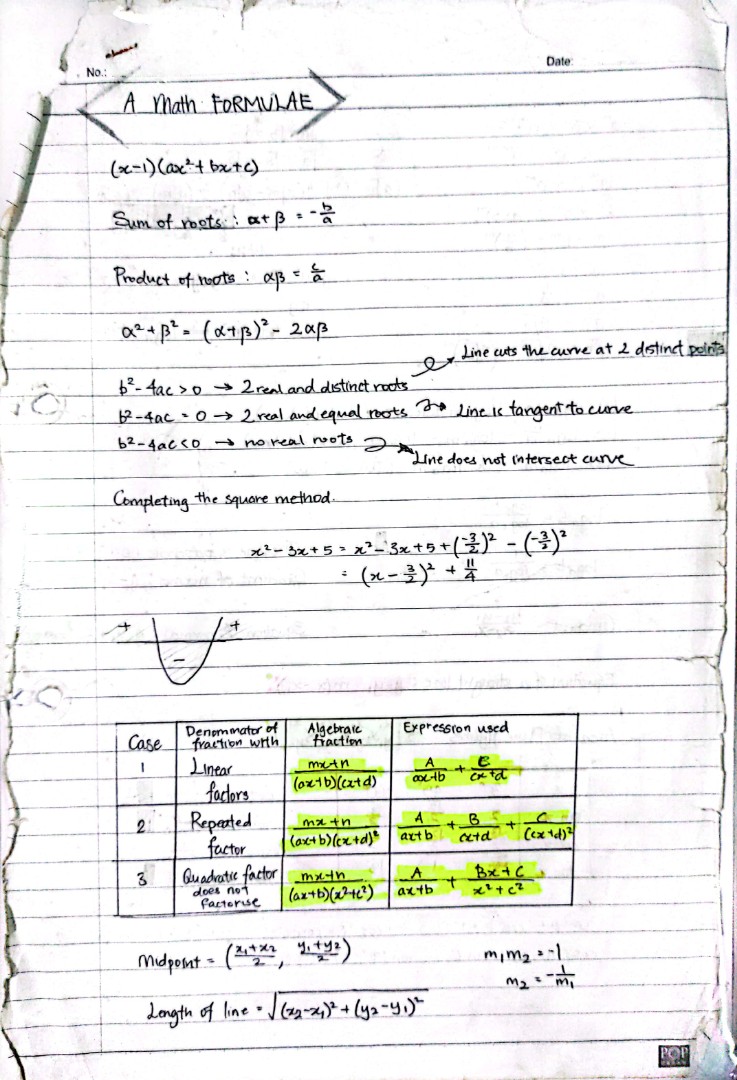 No.:
Date:
A Math FORMULAE
(x-1)(ax²+bx+c)
Sum of roots : α+β = -b/a
Product of roots : αβ = c/a
α²+β² = (α+β)² - 2αβ
Line cuts the curve at 2 distinct points
b²-4ac > 0 → 2 real and distinct roots
b²-4ac = 0 → 2 real and equal roots → Line is tangent to curve
b²-4ac < 0 → no real roots
Line does not intersect curve
Completing the square method.
x²-3x+5 = x²-3x+5+(-3/2)² - (-3/2)²
= (x-3/2)² + 11/4
+ +
-
Case | Denominator of fraction with | Algebraic fraction | Expression used
1 | Linear factors | mx+n/(ax+b)(cx+d) | A/ax+b + B/cx+d
2 | Repeated factor | mx+n/(ax+b)(cx+d)² | A/ax+b + B/cx+d + C/(cx+d)²
3 | Quadratic factor does not factorise | mx+n/(ax+b)(x²+c²) | A/ax+b + Bx+C/x²+c²
Midpoint = (x₁+x₂/2, y₁+y₂/2)
m₁m₂ = -1
m₂ = -1/m₁
Length of line = √(x₂-x₁)²+(y₂-y₁)²
POP